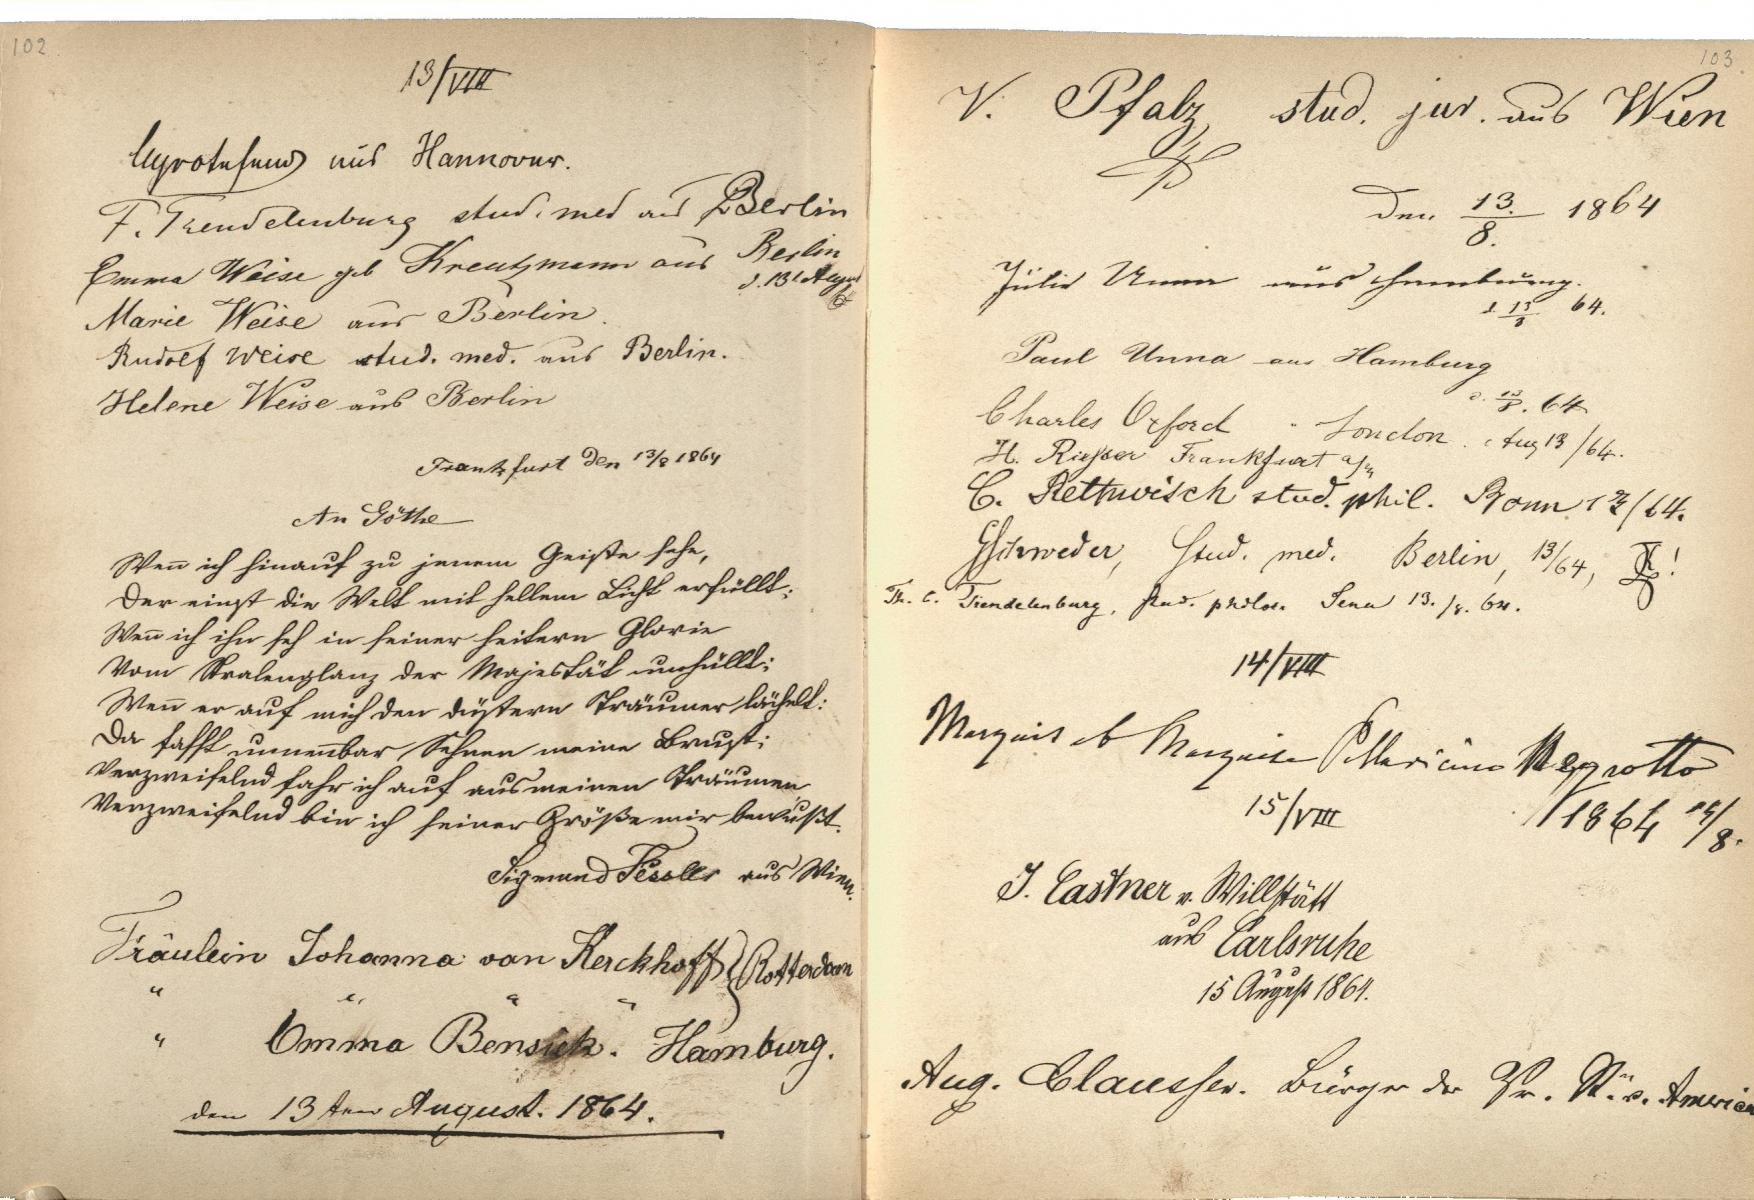 102
13/VIII
Grotefend aus Hannover.
F. Trendelenburg stud. med aus Berlin
Emma Weise geb Kreutzmann aus Berlin
d. 13t Augst
64
Marie Weise aus Berlin.
Rudolf Weise stud. med. aus Berlin.
Helene Weise aus Berlin
Frankfurt den 13/8 1864
An Göthe
Wenn ich hinauf zu jenem Geiste sehe,
Der einst die Welt mit hellem Licht erfüllt;
Wenn ich ihn seh in seiner heitern Glorie
Vom Stralenglanz der Majestät umhüllt;
Wenn er auf mich den düstern Träumer lächelt:
Da faßt unnennbar Sehnen meine Brust;
Verzweifelnd fahr ich auf aus meinen Träumen
Verzweifelnd bin ich seiner Größe mir bewußt.
Sigmund aus Wien.
Fräulein Johanna van Kerckhoff } Rotterdam
" " " "
" Emma Bensick. Hamburg.
den 13ten August. 1864.
103.
V. Pfalz, stud. jur. aus Wien
Den 13./8. 1864
Julie Unna aus Hamburg.
d 13/8 64.
Paul Unna aus Hamburg
d. 13/8. 64
Charles Oxford - London. Aug 13/64.
H. Riesser Frankfurt a/m
C. Rethwisch stud. phil. Bonn 64.
Stud. med. Berlin, 13/64, !
Th. C. Trendelenburg, stud. philos. Jena 13./8. 64.
14/VIII
Marquis et Marquise Negrotto
1864 14/8.
15/VIII
J. Castner v. Willstätt
aus Carlsruhe
15 August 1864.
Aug. Claussen. Bürger der Vr. St. v. America